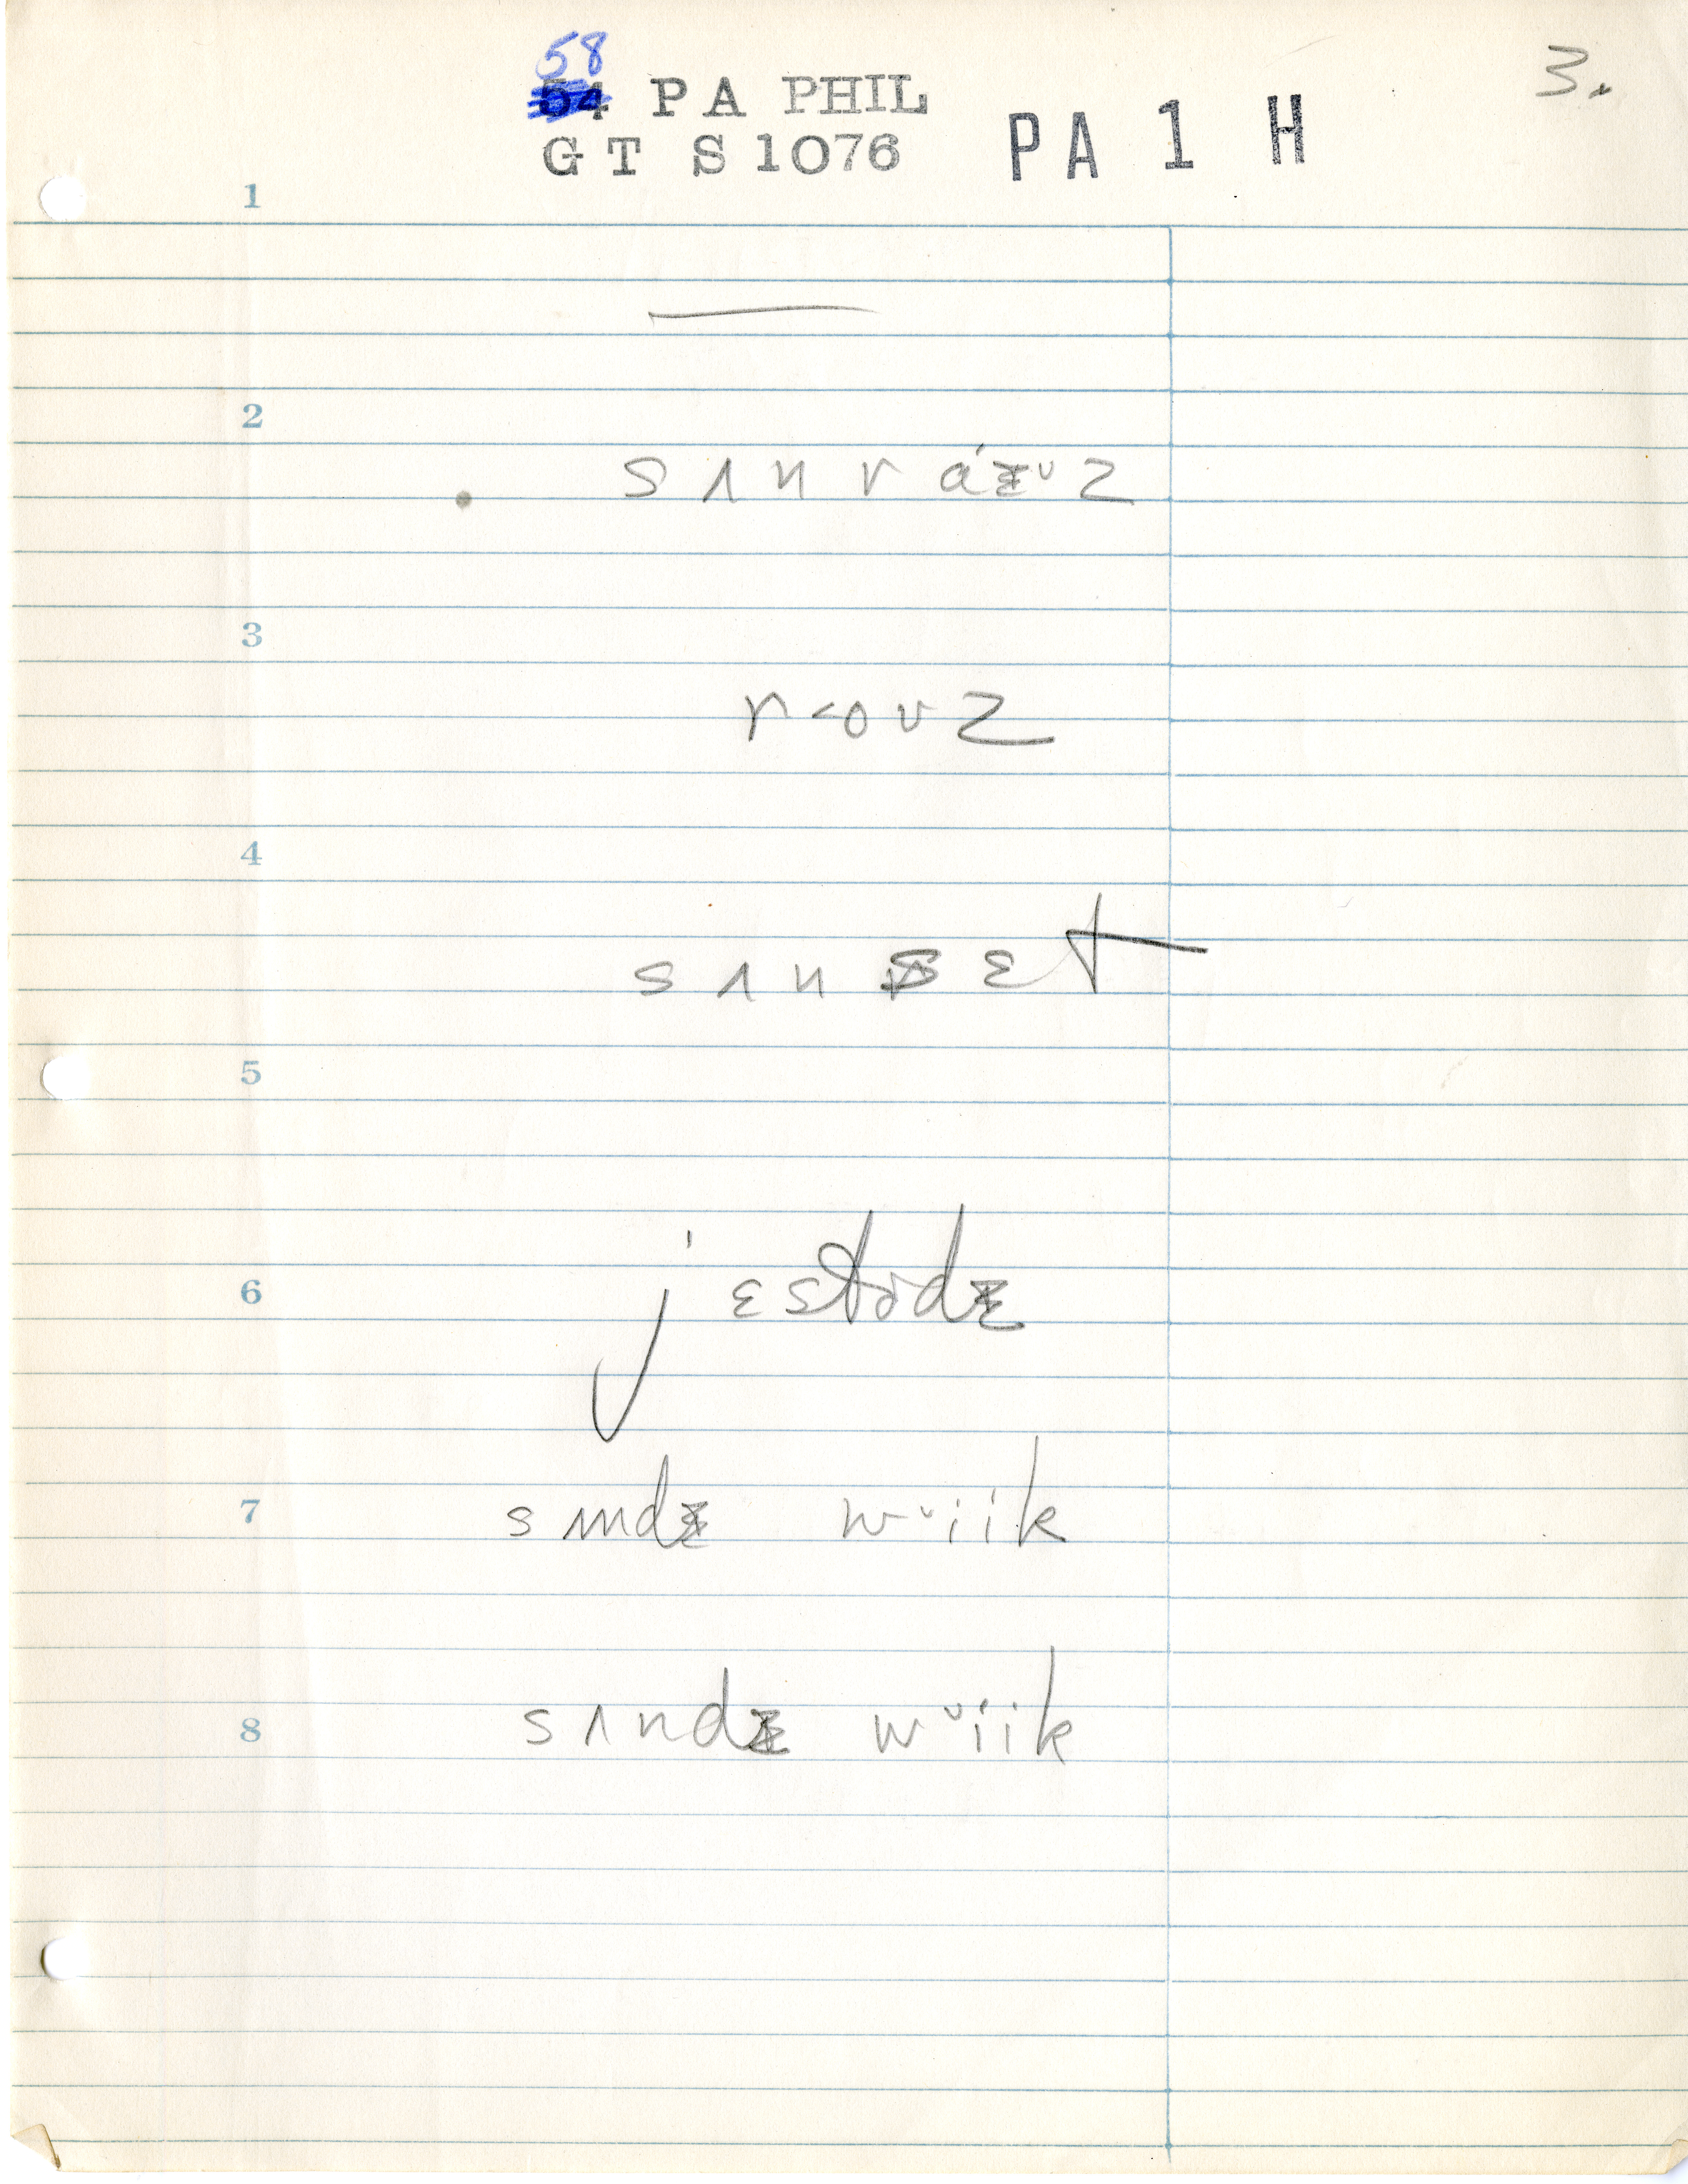 58
3.
54 PA PHIL
GT S1076 PA 1 H
1
2
sʌnrázᵛz
3
r<oʊz
4
sʌnsɛt
5
6
jɛstɚdɨ
7
sʌndɨ wᵛiik
8
sʌndɨ wᵛiik